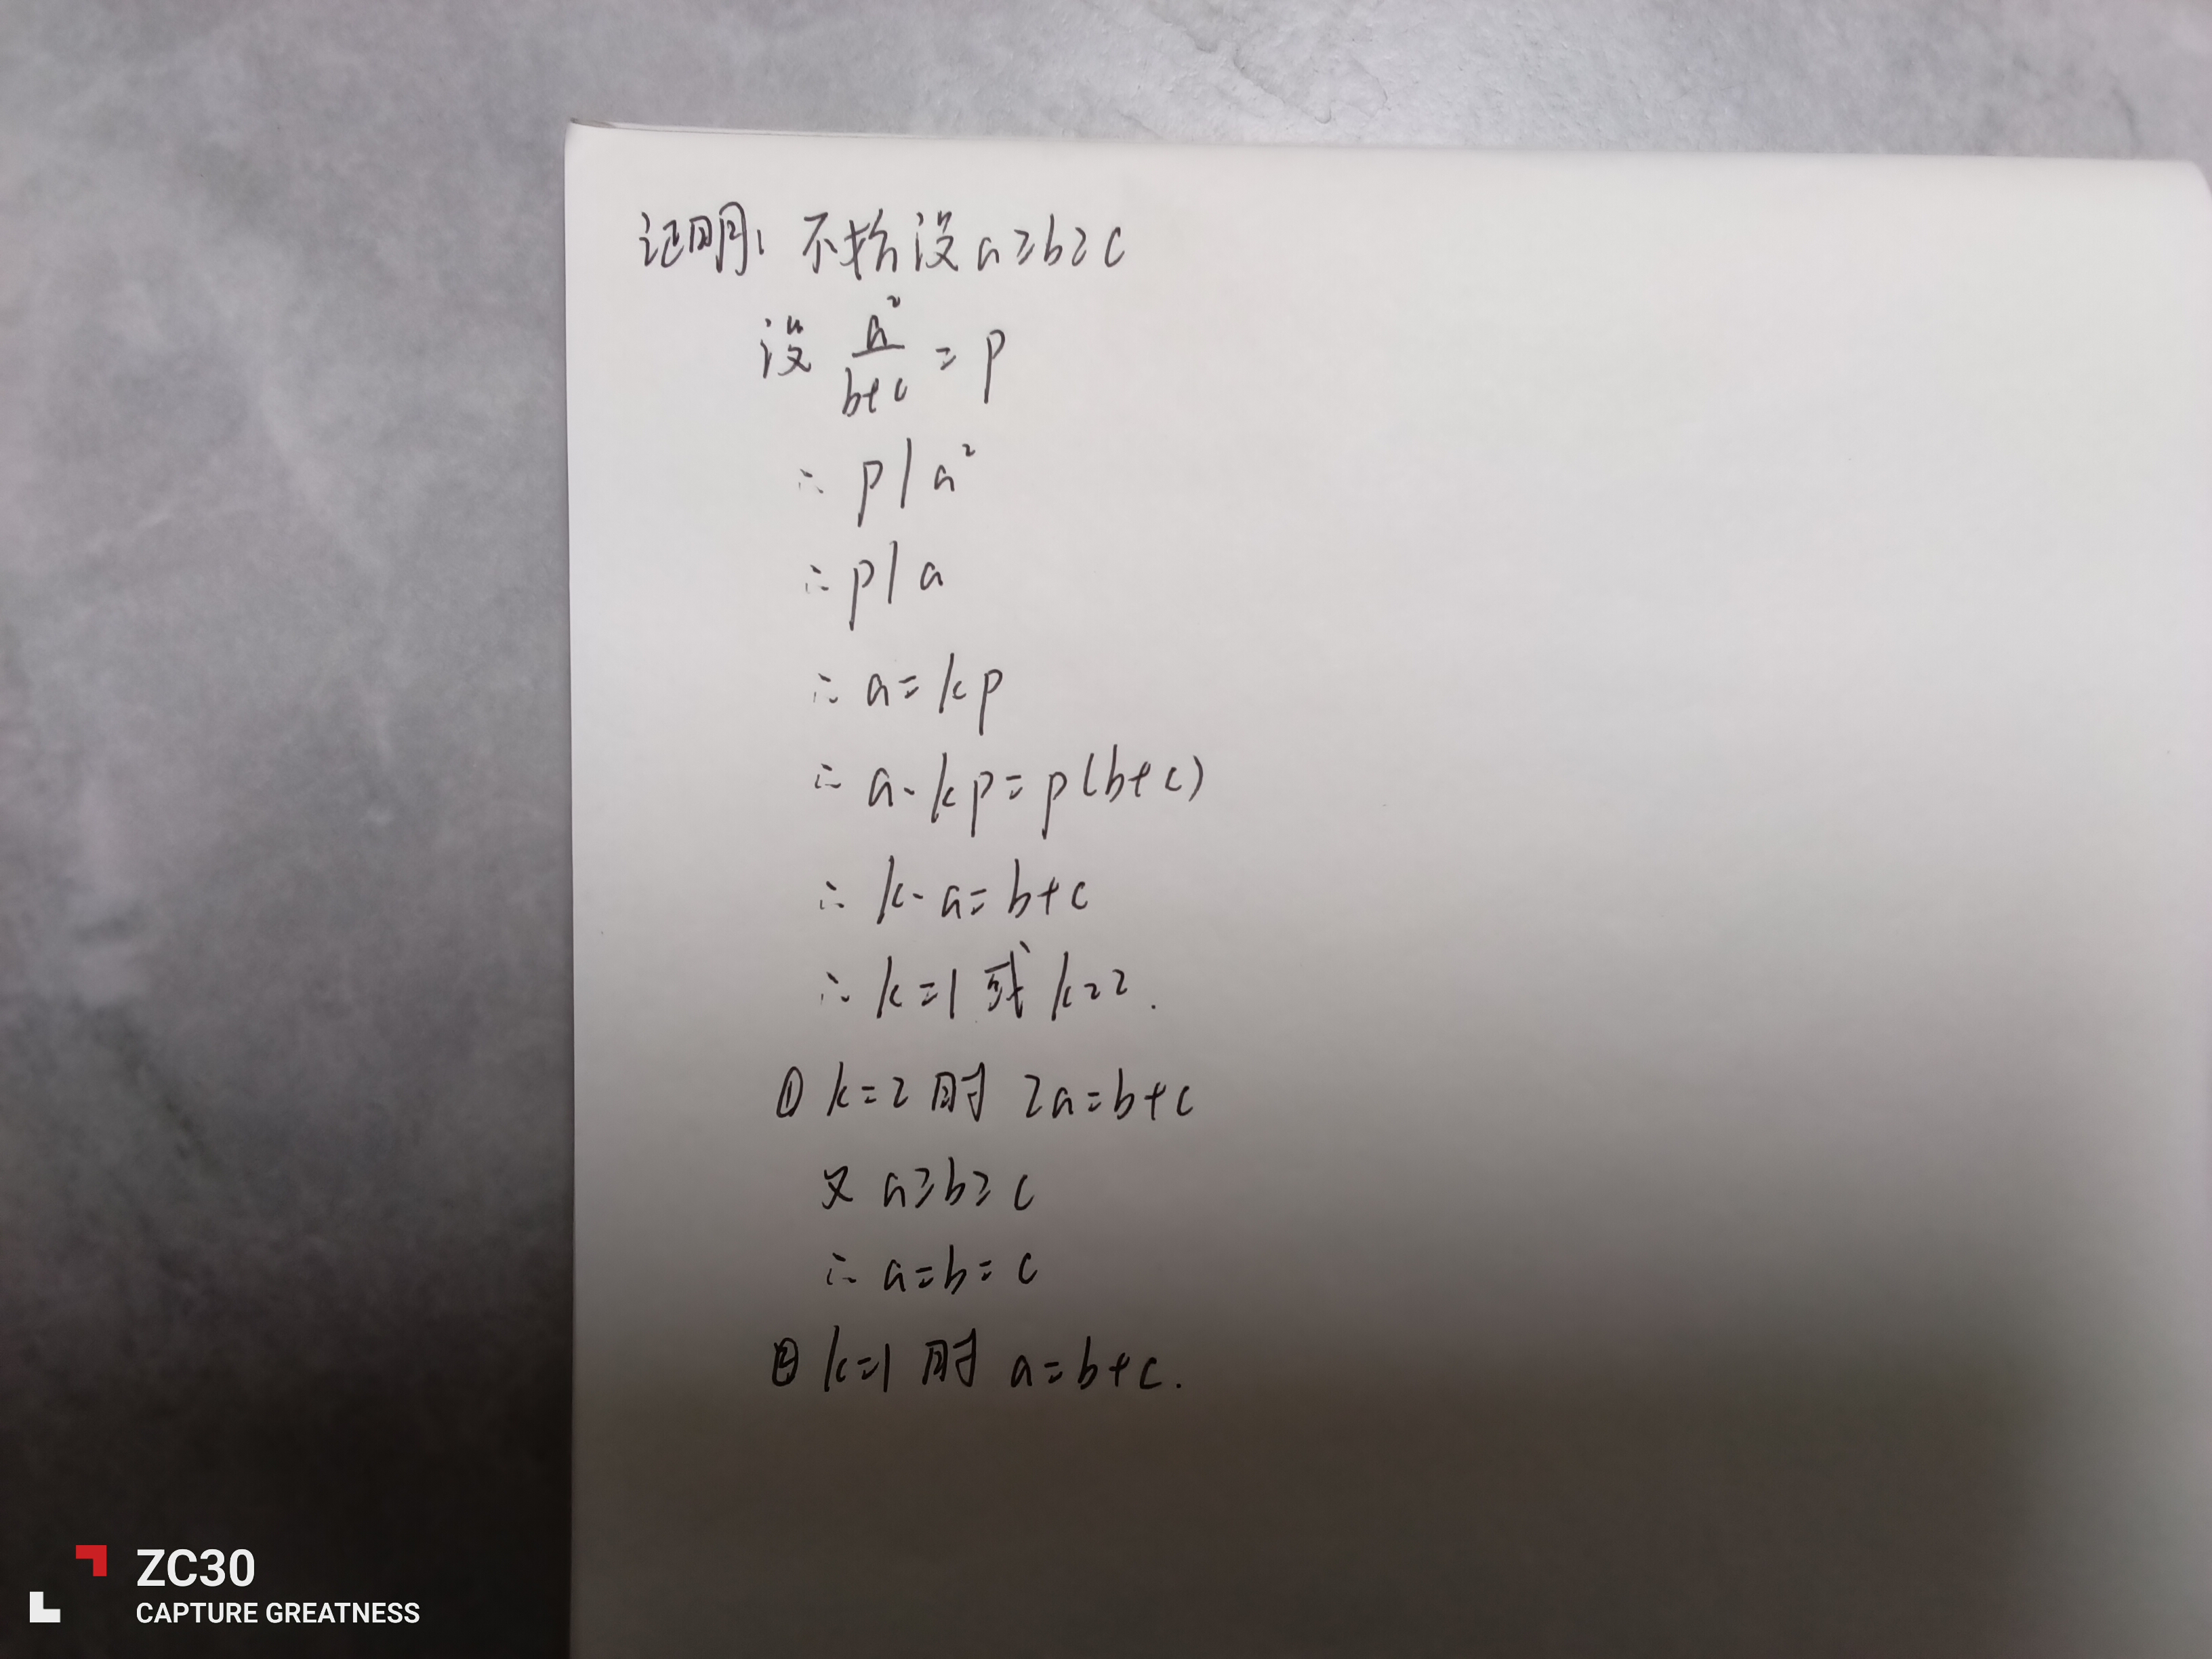 证明: 不妨设 a≥b≥c
设 a²/(b+c) = p
∴ p | a²
∴ p | a
∴ a = kp
∴ a·kp = p(b+c)
∴ k·a = b+c
∴ k=1 或 k=2.
① k=2 时 2a=b+c
又 a≥b≥c
∴ a=b=c
② k=1 时 a=b+c.
ZC30
CAPTURE GREATNESS